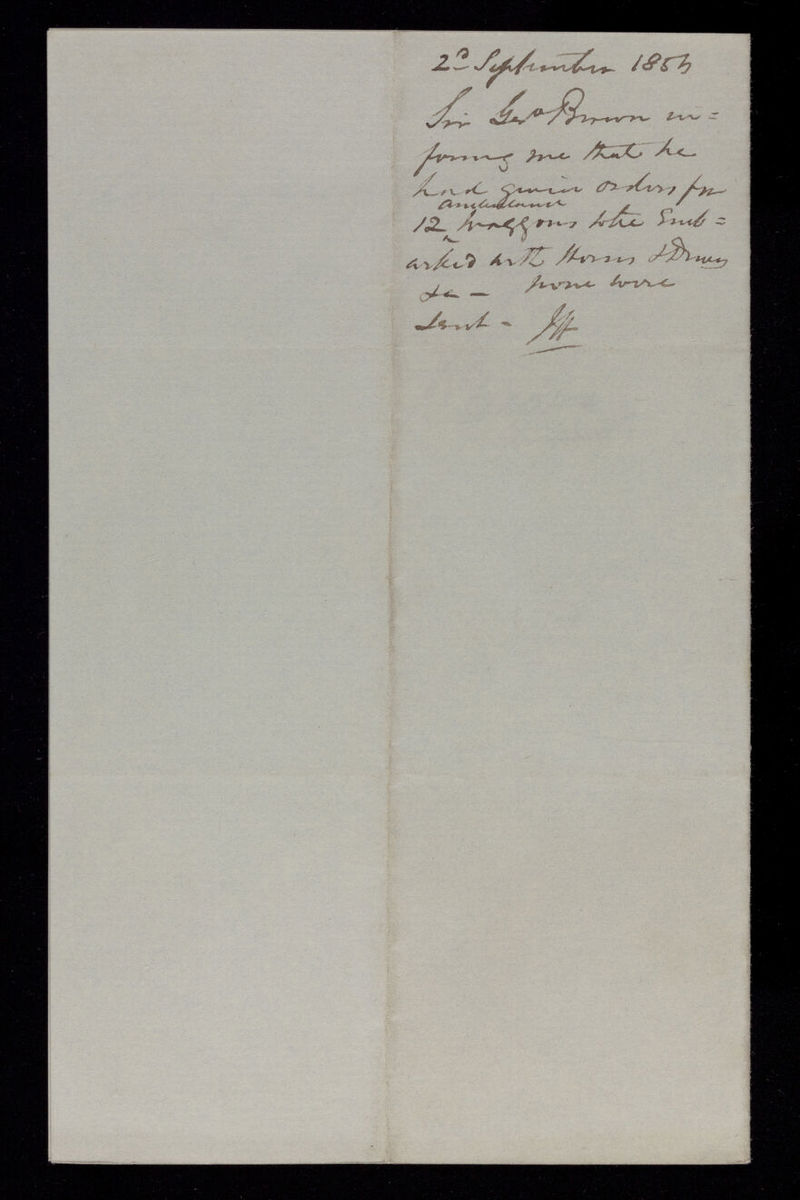 2d September 1854
Sir Geo Brown in=
forming me that he
had given orders for
ambulance
12 ^ Waggons to be Emb=
arked with Horses & Drivers
&c — None were
Sent - JH